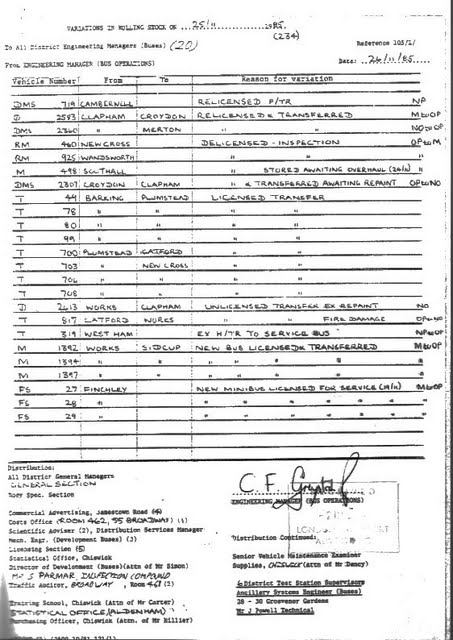 VARIATIONS IN ROLLING STOCK ON 25/11 1985
(234)
To All District Engineering Managers (Buses) (20) Reference 105/1/
From ENGINEERING MANAGER (BUS OPERATIONS) Date: 26/11/85
Vehicle Number From To Reason for variation
DMS 719 CAMBERWELL RELICENSED P/TR NP
D 2583 CLAPHAM CROYDON RELICENSED & TRANSFERRED M to OP
DMS 2360 " MERTON " " NO to OP
RM 460 NEW CROSS DELICENSED - INSPECTION OP to M
RM 925 WANDSWORTH " " "
M 498 SOUTHALL " STORED AWAITING OVERHAUL (24/11) "
DMS 2307 CROYDON CLAPHAM " & TRANSFERRED AWAITING REPAINT OP to NO
T 44 BARKING PLUMSTEAD LICENSED TRANSFER
T 78 " " " "
T 80 " " " "
T 99 " " " "
T 700 PLUMSTEAD CATFORD " "
T 703 " NEW CROSS " "
T 706 " " " "
T 708 " " " "
D 2413 WORKS CLAPHAM UNLICENSED TRANSFER EX REPAINT NO
T 817 CATFORD WORKS " " FIRE DAMAGE OP to NO
T 319 WEST HAM EX H/TR TO SERVICE BUS NP to OP
M 1392 WORKS SIDCUP NEW BUS LICENSED & TRANSFERRED M to OP
M 1394 " " " " " " "
M 1397 " " " " " " "
FS 27 FINCHLEY NEW MINIBUS LICENSED FOR SERVICE (19/11) M to OP
FS 28 " " " " " " " "
FS 29 " " " " " " " "
Distribution:
All District General Managers
GENERAL SECTION
Spec. Section
Commercial Advertising, Jamestown Road
Costs Office (ROOM 462, 55 BROADWAY) (1)
Scientific Adviser (2), Distribution Services Manager
Mech. Engr. (Development Buses) (3)
Licensing Section (5)
Statistical Office, Chiswick
Director of Development (Buses)(Attn of Mr Simon)
MR S PARMAR INSPECTION COMPOUND
Traffic Auditor, BROADWAY, ROOM
Training School, Chiswick (Attn of Mr Carter)
STATISTICAL OFFICE (ALDENHAM)
Purchasing Officer, Chiswick (Attn of Mr Hillier)
C. F.
ENGINEERING MANAGER (BUS OPERATIONS)
Distribution Continued:
Senior Vehicle Maintenance Examiner
Supplies, CHISWICK (Attn of Mr Dancy)
6 District Test Station Supervisors
Ancillary Systems Engineer (Buses)
28 - 30 Grosvenor Gardens
Mr J Powell Technical